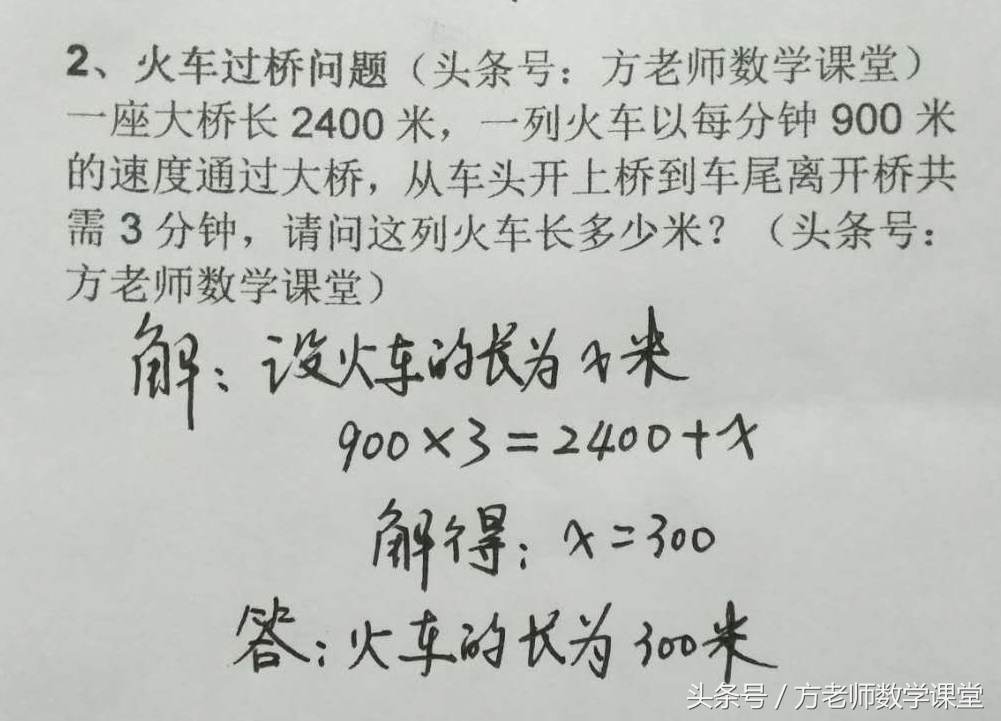 2、火车过桥问题（头条号：方老师数学课堂）
一座大桥长 2400 米，一列火车以每分钟 900 米
的速度通过大桥，从车头开上桥到车尾离开桥共
需 3 分钟，请问这列火车长多少米？（头条号：
方老师数学课堂）
解：设火车的长为x米
900×3=2400+x
解得：x=300
答：火车的长为300米
头条号 / 方老师数学课堂